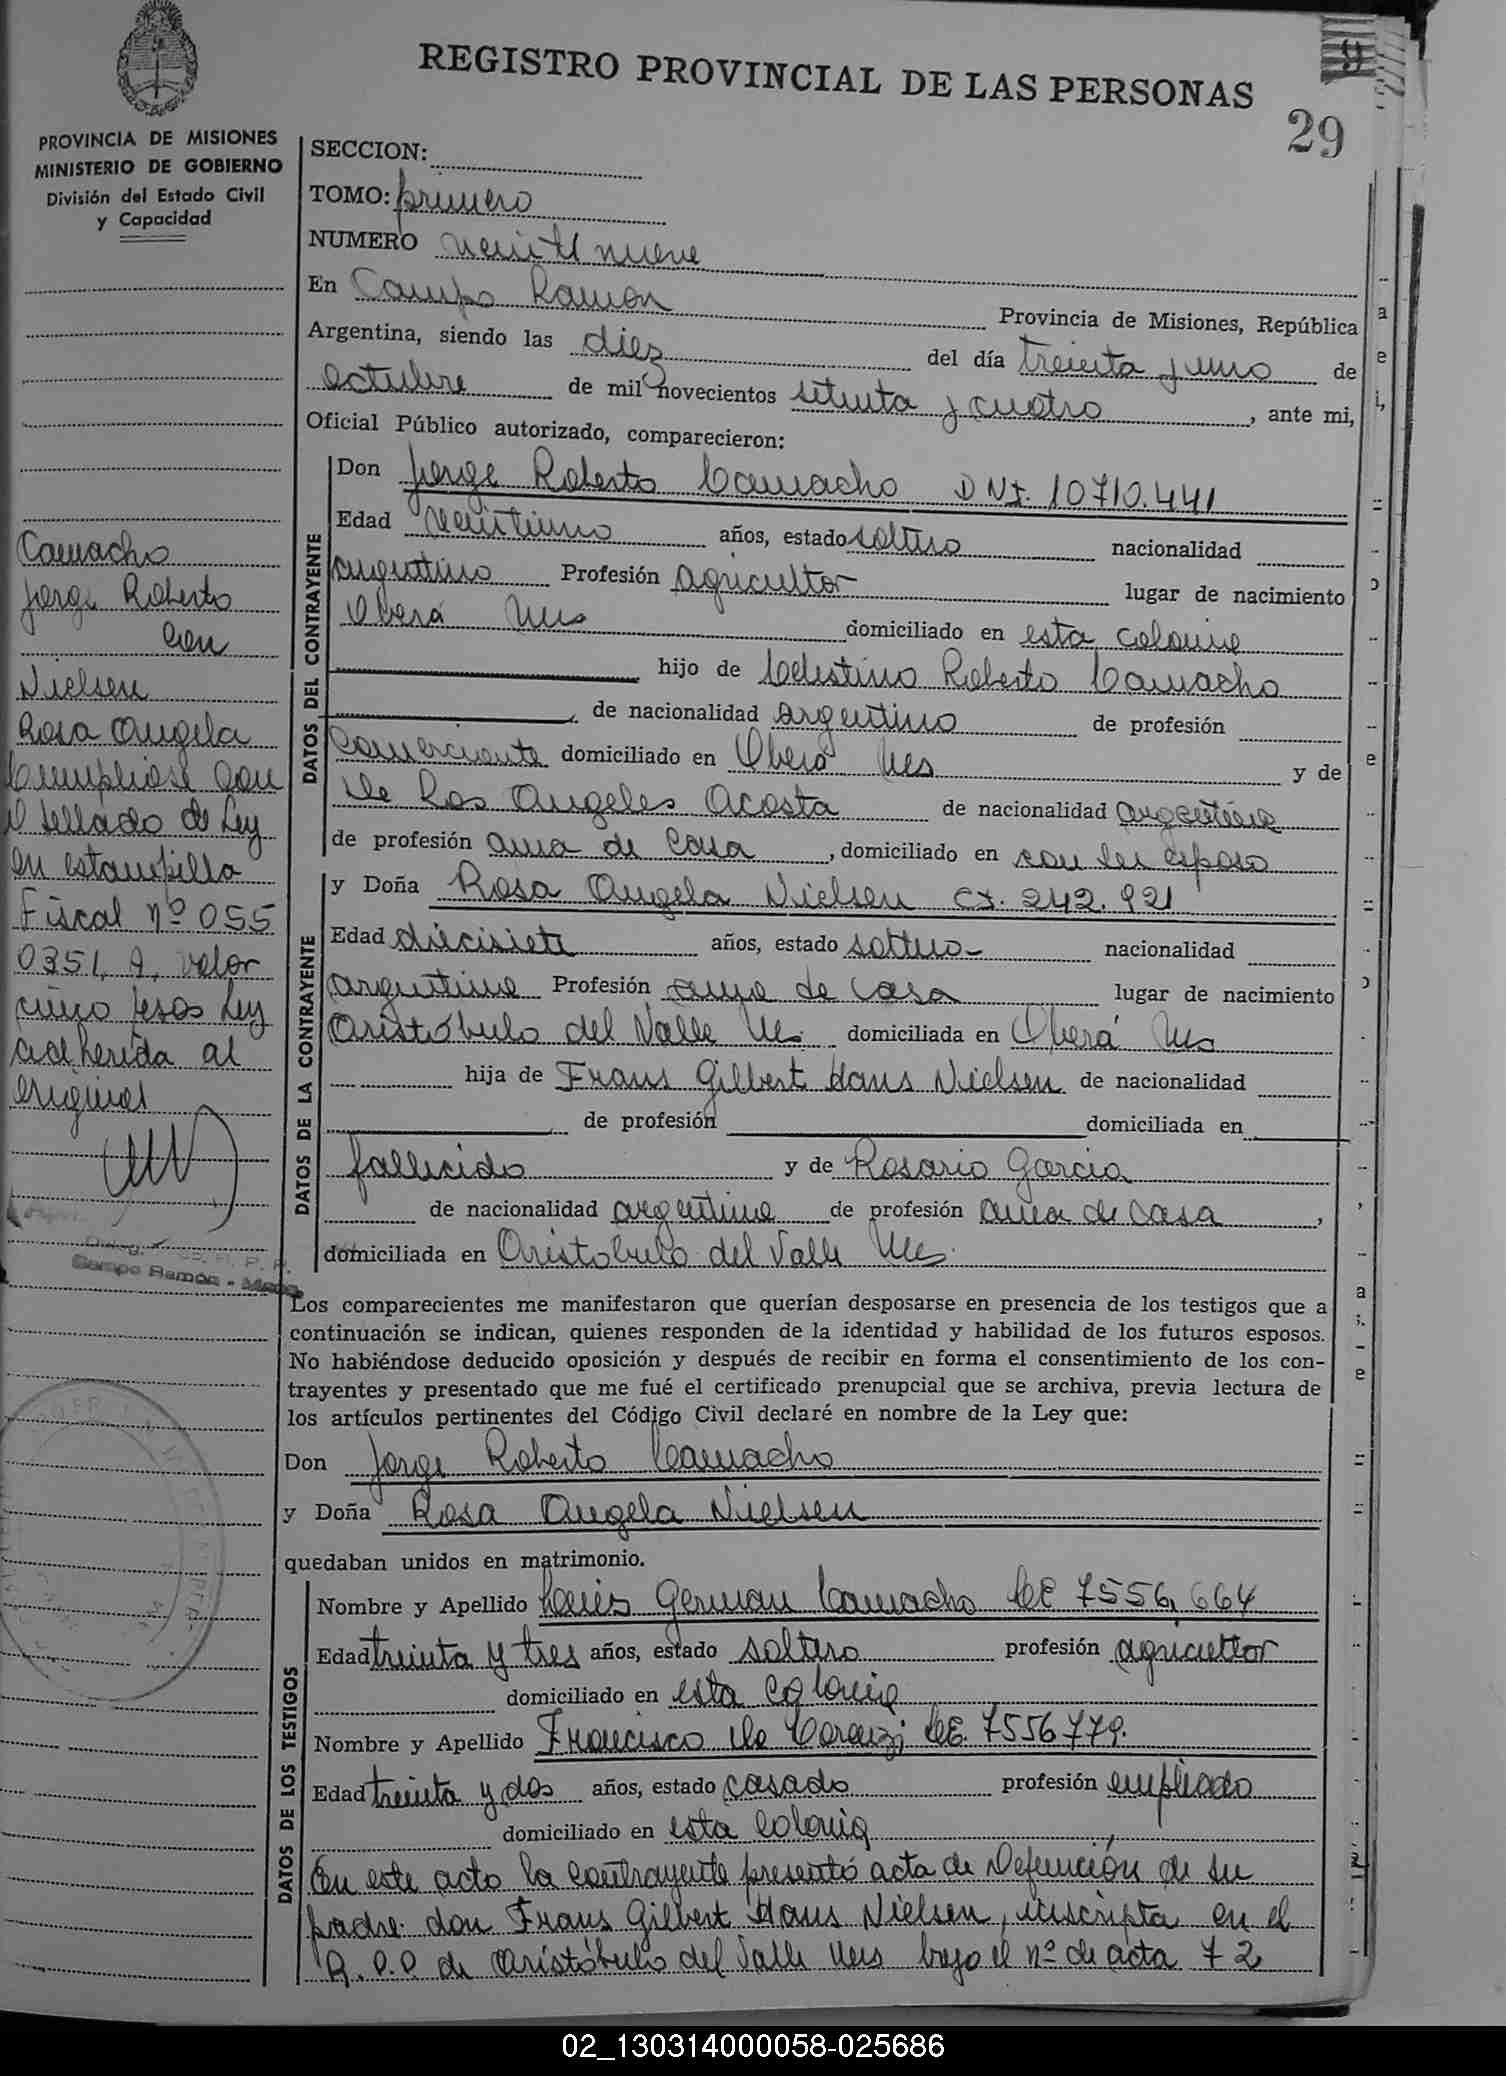 REGISTRO PROVINCIAL DE LAS PERSONAS
29
PROVINCIA DE MISIONES
MINISTERIO DE GOBIERNO
División del Estado Civil
y Capacidad
SECCION:
TOMO: primero
NUMERO veintinueve
En Campo Ramón Provincia de Misiones, República
Argentina, siendo las diez del día treinta y uno de
octubre de mil novecientos setenta y cuatro, ante mi,
Oficial Público autorizado, comparecieron:
DATOS DEL CONTRAYENTE
Don Jorge Roberto Camacho DNI. 10710.441
Edad veintiuno años, estado soltero nacionalidad
argentino Profesión agricultor lugar de nacimiento
Oberá Mnes domiciliado en esta colonia
hijo de Celestino Roberto Camacho
de nacionalidad argentino de profesión
comerciante domiciliado en Oberá Mnes y de
De Los Angeles Acosta de nacionalidad argentina
de profesión ama de casa, domiciliado en con su esposo
DATOS DE LA CONTRAYENTE
y Doña Rosa Angela Nielsen CI. 242.921
Edad diecisiete años, estado soltera nacionalidad
argentina Profesión ama de casa lugar de nacimiento
Aristóbulo del Valle Ms. domiciliada en Oberá Mns
hija de Frans Gilbert Hans Nielsen de nacionalidad
de profesión domiciliada en
fallecido y de Rosario Garcia
de nacionalidad argentina de profesión ama de casa,
domiciliada en Aristobulo del Valle Mnes.
Los comparecientes me manifestaron que querían desposarse en presencia de los testigos que a
continuación se indican, quienes responden de la identidad y habilidad de los futuros esposos.
No habiéndose deducido oposición y después de recibir en forma el consentimiento de los con-
trayentes y presentado que me fué el certificado prenupcial que se archiva, previa lectura de
los artículos pertinentes del Código Civil declaré en nombre de la Ley que:
Don Jorge Roberto Camacho
y Doña Rosa Angela Nielsen
quedaban unidos en matrimonio.
DATOS DE LOS TESTIGOS
Nombre y Apellido Luis German Camacho LE 7556,664
Edad treinta y tres años, estado soltero profesión agricultor
domiciliado en esta colonia
Nombre y Apellido Francisco De LE. 7556779.
Edad treinta y dos años, estado casado profesión empleado
domiciliado en esta colonia
En este acto la contrayente presentó acta de Defunción de su
padre don Frans Gilbert Hans Nielsen, inscripta en el
R.P.P de Aristóbulo del Valle Mnes bajo el nº de acta 72
Camacho
Jorge Roberto
con
Nielsen
Rosa Angela
Cumpliose con
el sellado de Ley
en estampilla
Fiscal nº 055
0351, A, valor
cinco pesos Ley
adherida al
original
Campo Ramón - Mnes.
02_130314000058-025686